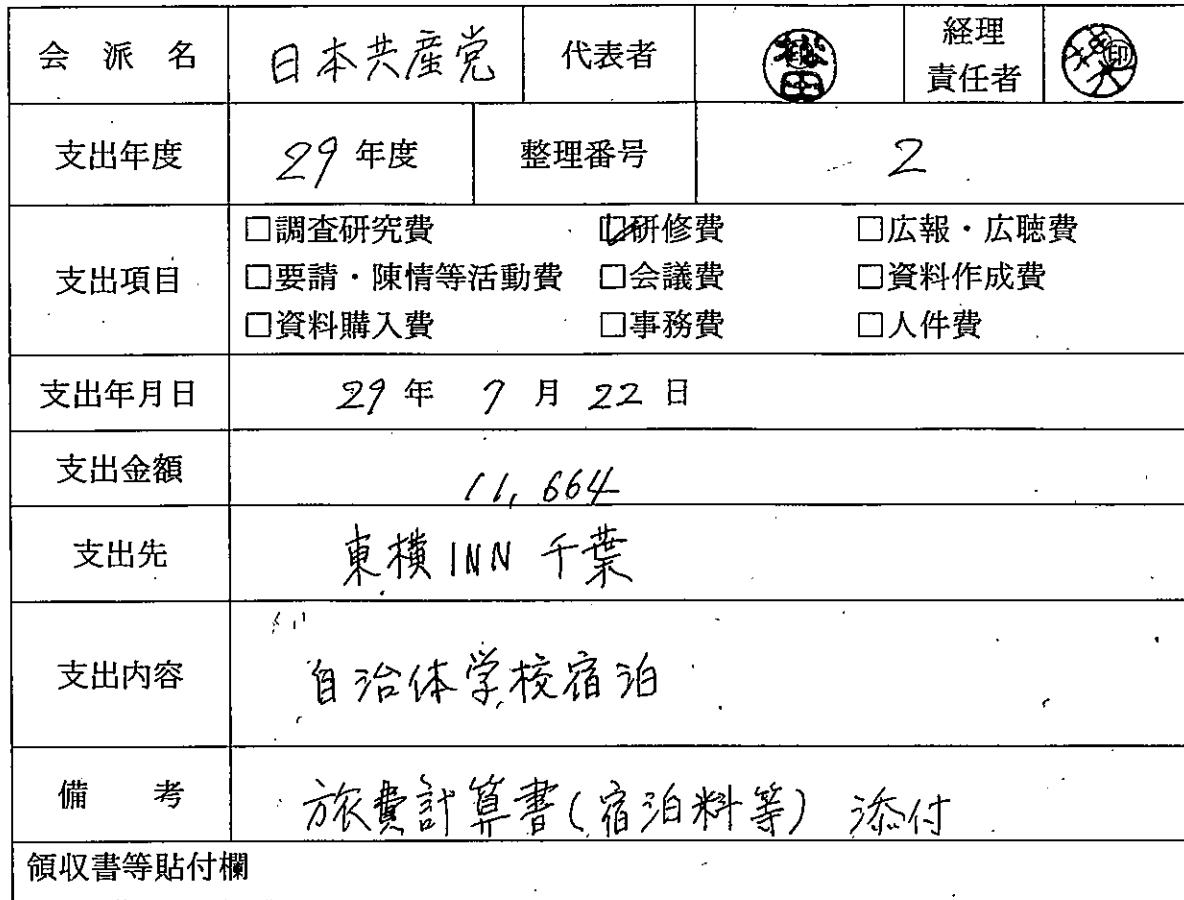 会派名 日本共産党 代表者 経理責任者 印
支出年度 29年度 整理番号 2
支出項目
□調査研究費 ☑研修費 □広報・広聴費
□要請・陳情等活動費 □会議費 □資料作成費
□資料購入費 □事務費 □人件費
支出年月日 29年7月22日
支出金額 11,664
支出先 東横INN 千葉
支出内容 自治体学校宿泊
備考 旅費計算書(宿泊料等) 添付
領収書等貼付欄